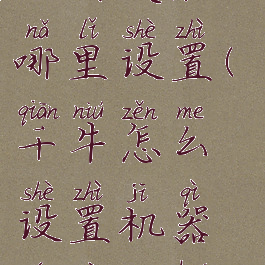 nǎ lǐ shè zhì
哪里设置(
qiān niú zěn me
千牛怎么
shè zhì jī qì
设置机器